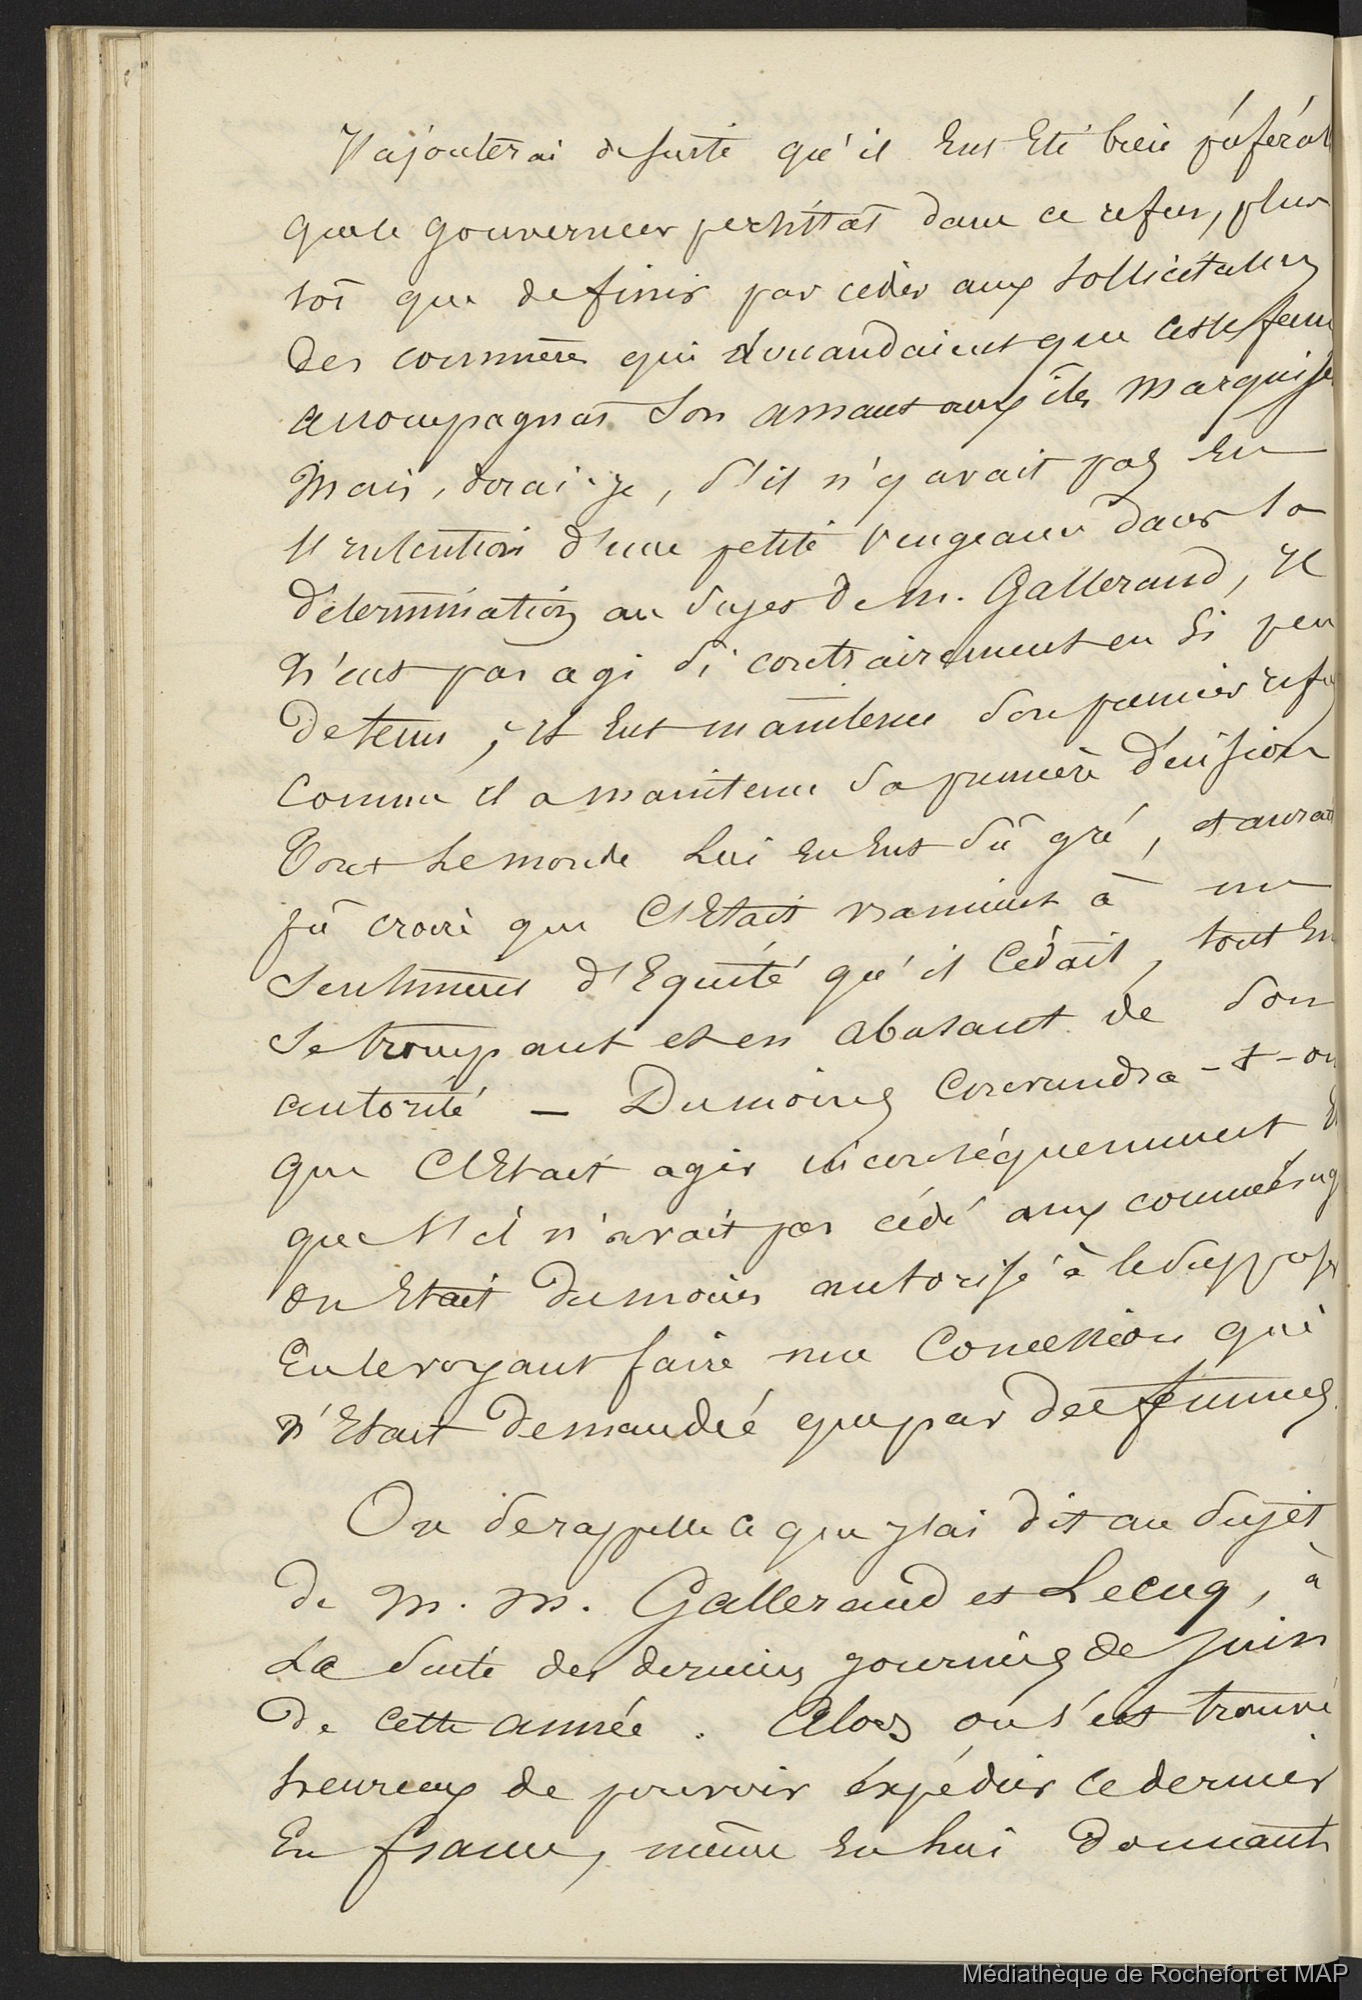 J'ajouterai de suite qu'il eut été bien préférab
que le gouverneur persistat dans ce refus, plus
tot que de finir par céder aux sollicitations
des commères qui demandaient que cette fem
accompagnat son amant aux îles marquise
mais, dirai-je, s'il n'y avait pas eu
l'intention d'une petite vengeance dans sa
détermination au sujet de M. Gallerand, il
n'eut pas agi si contrairement en si peu
de tems, il eut maintenu son premier refu
comme il a maintenu sa première décision
tout le monde lui en eut sû gré, et aurait
pû croire que c'était vraiment à un
sentiment d'équité qu'il cédait, tout en
se trompant et en abusant de son
autorité — Dumoins conviendra-t-on
que c'était agir inconséquemment
que s'il n'avait pas cédé aux commérag
on était dumoins autorisé à le suppose
en le voyant faire une concession qui
n'était demandée que par des femmes.
On se rappelle ce que j'ai dit au sujet
de M. M. Gallerand et Lecuq, à
la suite des dernières journées de juin
de cette année. Alors on s'est trouvé
heureux de pouvoir expédier ce dernier
en france, même en lui donnant
Médiathèque de Rochefort et MAP